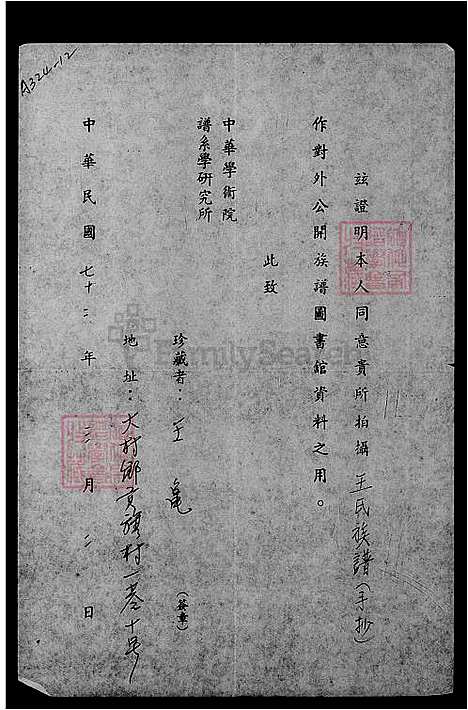 A324-12
茲證明本人同意貴所拍攝王氏族譜(手抄)
作對外公開族譜圖書館資料之用。
此致
中華學術院
譜系學研究所
珍藏者:王 (簽章)
地址:大村鄉貢旗村一巷十号
中華民國七十二年三月二日
FamilySearch